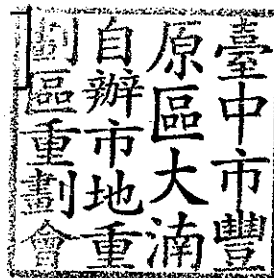 臺中市豐
原區大湳
自辦市地重
劃區重劃會